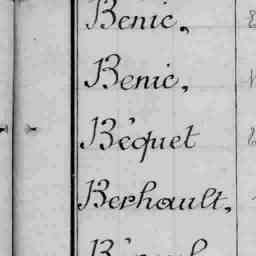 Benic,
Benic,
Béquet
Berhault,